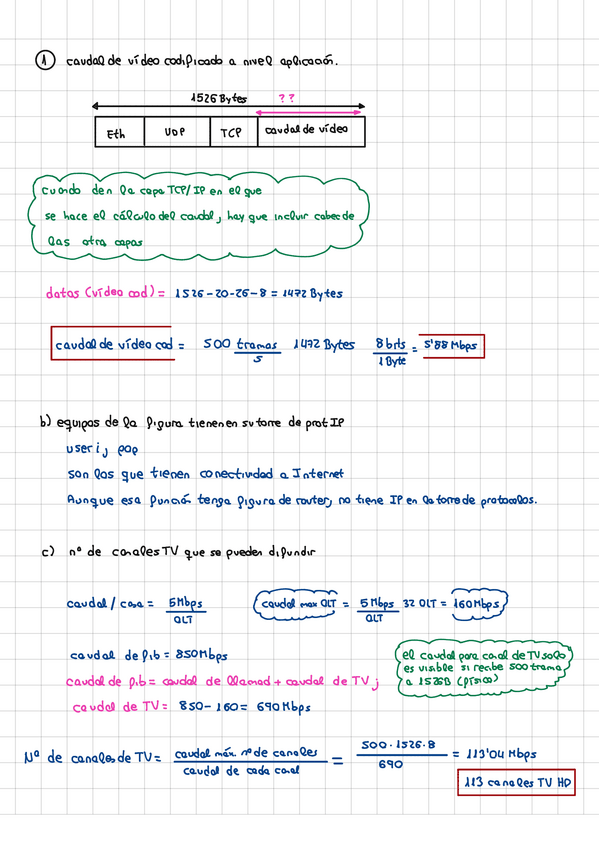 1 caudal de vídeo codificado a nivel aplicación.
1526 Bytes ??
Eth UDP TCP caudal de vídeo
cuando den la capa TCP/IP en el que
se hace el cálculo del caudal, hay que incluir cabec de
las otra capas
datos (vídeo cod) = 1526-20-26-8 = 1472 Bytes
caudal de vídeo cod = 500 tramas/s 1472 Bytes 8 bits/1 Byte = 5'88 Mbps
b) equipos de la figura tienen en su torre de prot IP
user i, pop
son los que tienen conectividad a Internet
Aunque esa función tenga figura de router, no tiene IP en la torre de protocolos.
c) nº de canales TV que se pueden difundir
caudal / casa = 5 Mbps/OLT caudal max OLT = 5 Mbps/OLT 32 OLT = 160 Mbps
caudal de fib = 850 Mbps
el caudal para canal de TV solo
es visible si recibe 500 trama
a 1526B (físico)
caudal de fib = caudal de llamad + caudal de TV;
caudal de TV = 850 - 160 = 690 Mbps
Nº de canales de TV = caudal máx. nº de canales/caudal de cada canal = 500·1526·8/690 = 113'04 Mbps
113 canales TV HD